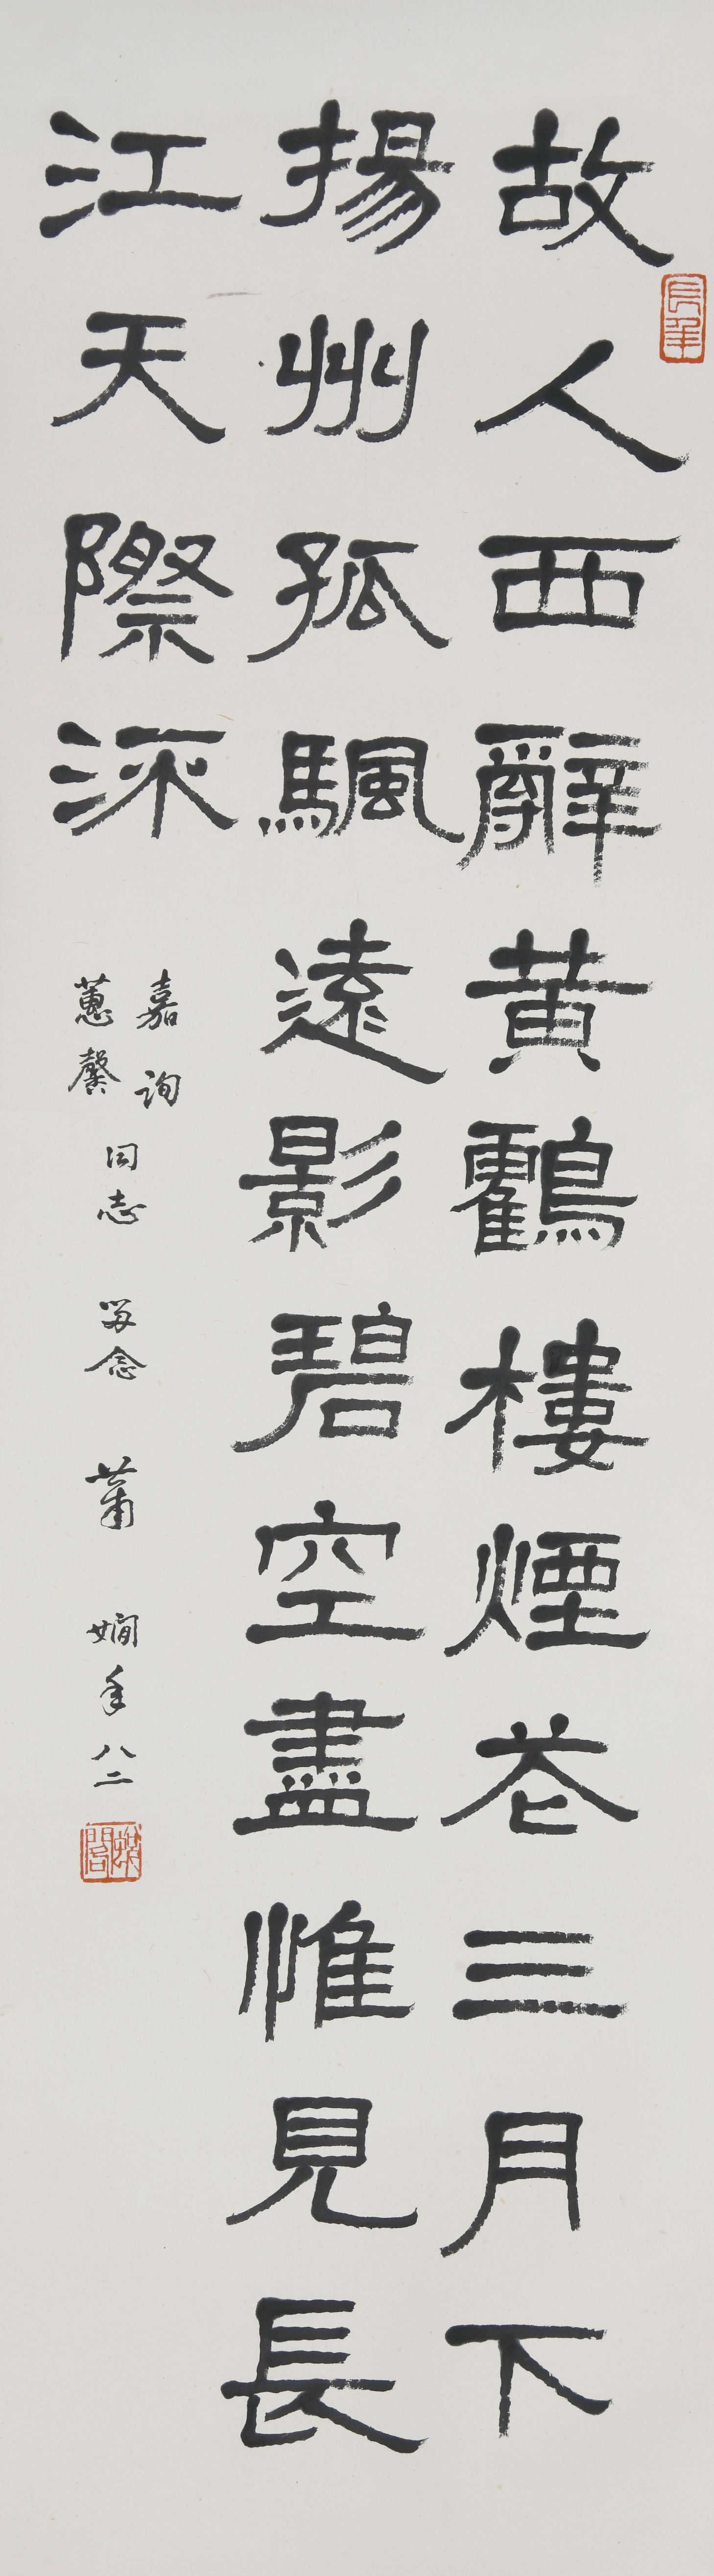 故人西辭黄鸖樓煙芲三月下
揚州孤颿遠影碧空盡惟見長
江天際㳅
嘉詢
蕙馨
同志 留念 蕭嫻年八二
長年
蕭嫻